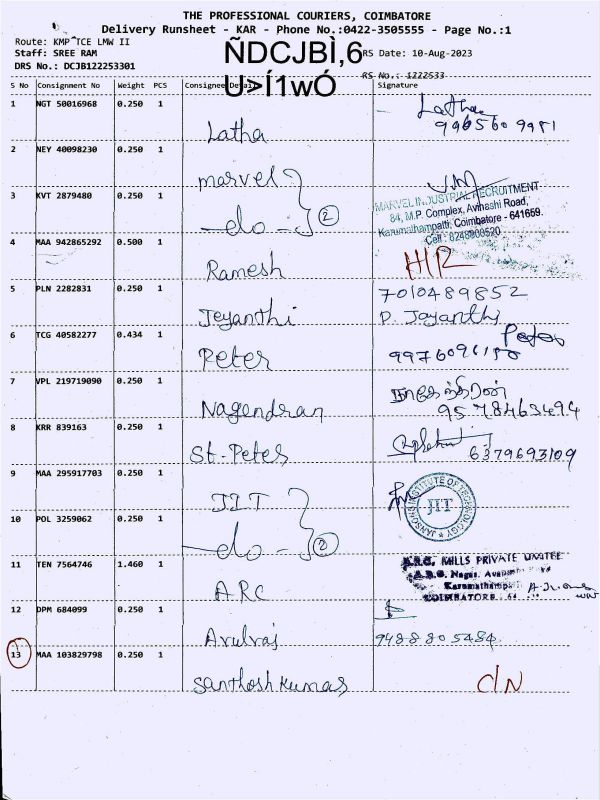 THE PROFESSIONAL COURIERS, COIMBATORE
Delivery Runsheet - KAR - Phone No.:0422-3505555 - Page No.:1
Route: KMP^TCE LMW II
Staff: SREE RAM
DRS No.: DCJB122253301
ÑDCJBÌ,6
U>Í1wÓ
RS Date: 10-Aug-2023
RS No.: 1222533
S No Consignment No Weight PCS Consignee Details Signature
1 NGT 50016968 0.250 1 Latha Latha
9965609981
2 NEY 40098230 0.250 1 marvel
3 KVT 2879480 0.250 1 -do- 2
MARVEL INDUSTRIAL RECRUITMENT
84, M.P. Complex, Avinashi Road,
Karumathampatti, Coimbatore - 641659.
Cell : 8248800520
4 MAA 942865292 0.500 1 Ramesh
5 PLN 2282831 0.250 1 Jeyanthi 7010489852
P. Jayanthi
6 TCG 40582277 0.434 1 Peter Peter
7 VPL 219719090 0.250 1 Nagendran நாகேந்திரன்
9578463494
8 KRR 839163 0.250 1 St-Peter 6379693109
9 MAA 295917703 0.250 1 JIT
JANSONS INSTITUTE OF TECHNOLOGY
JIT
10 POL 3259062 0.250 1 -do- 2
11 TEN 7564746 1.460 1 ARC
MILLS PRIVATE LIMITED
COIMBATORE
12 DPM 684099 0.250 1 Arulraj 9488805484
13 MAA 103829798 0.250 1 Santhosh kumar